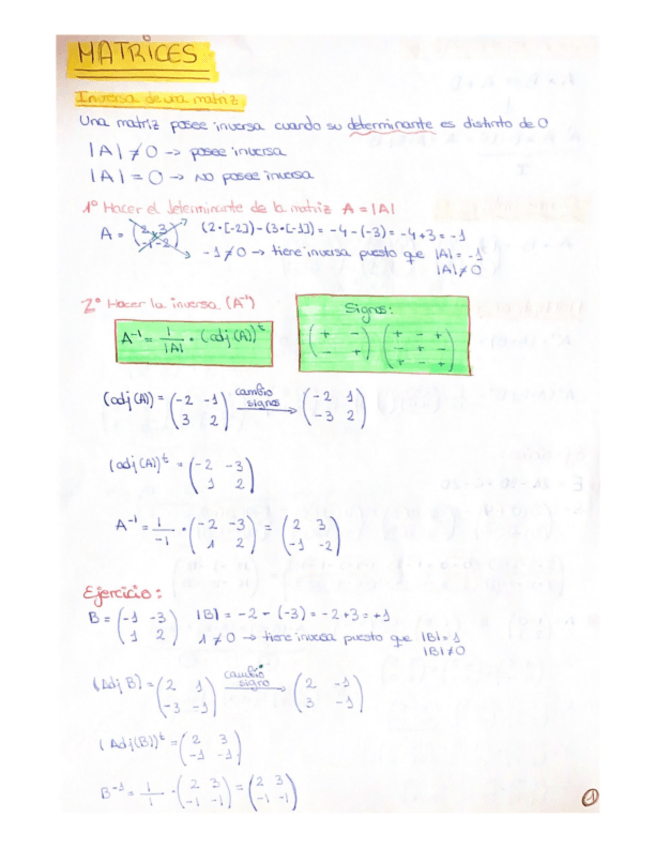 MATRICES
Inversa de una matriz
Una matriz posee inversa cuando su determinante es distinto de 0
|A| ≠ 0 -> posee inversa
|A| = 0 -> no posee inversa
1º Hacer el determinante de la matriz A = |A|
A = (2 3 / -1 -2) (2·[-2])-(3·[-1]) = -4-(-3) = -4+3 = -1
-1 ≠ 0 -> tiene inversa puesto que |A| = -1
|A| ≠ 0
2º Hacer la inversa (A⁻¹)
A⁻¹ = 1/|A| · (adj(A))ᵗ
Signos:
(+ - / - +) (+ - + / - + - / + - +)
(adj(A)) = (-2 -1 / 3 2) cambio signos -> (-2 1 / -3 2)
(adj(A))ᵗ = (-2 -3 / 1 2)
A⁻¹ = 1/-1 · (-2 -3 / 1 2) = (2 3 / -1 -2)
Ejercicio:
B = (-1 -3 / 1 2) |B| = -2 - (-3) = -2+3 = +1
1 ≠ 0 -> tiene inversa puesto que |B| = 1
|B| ≠ 0
(Adj B) = (2 1 / -3 -1) cambio signo -> (2 -1 / 3 -1)
(Adj(B))ᵗ = (2 3 / -1 -1)
B⁻¹ = 1/1 · (2 3 / -1 -1) = (2 3 / -1 -1)
1